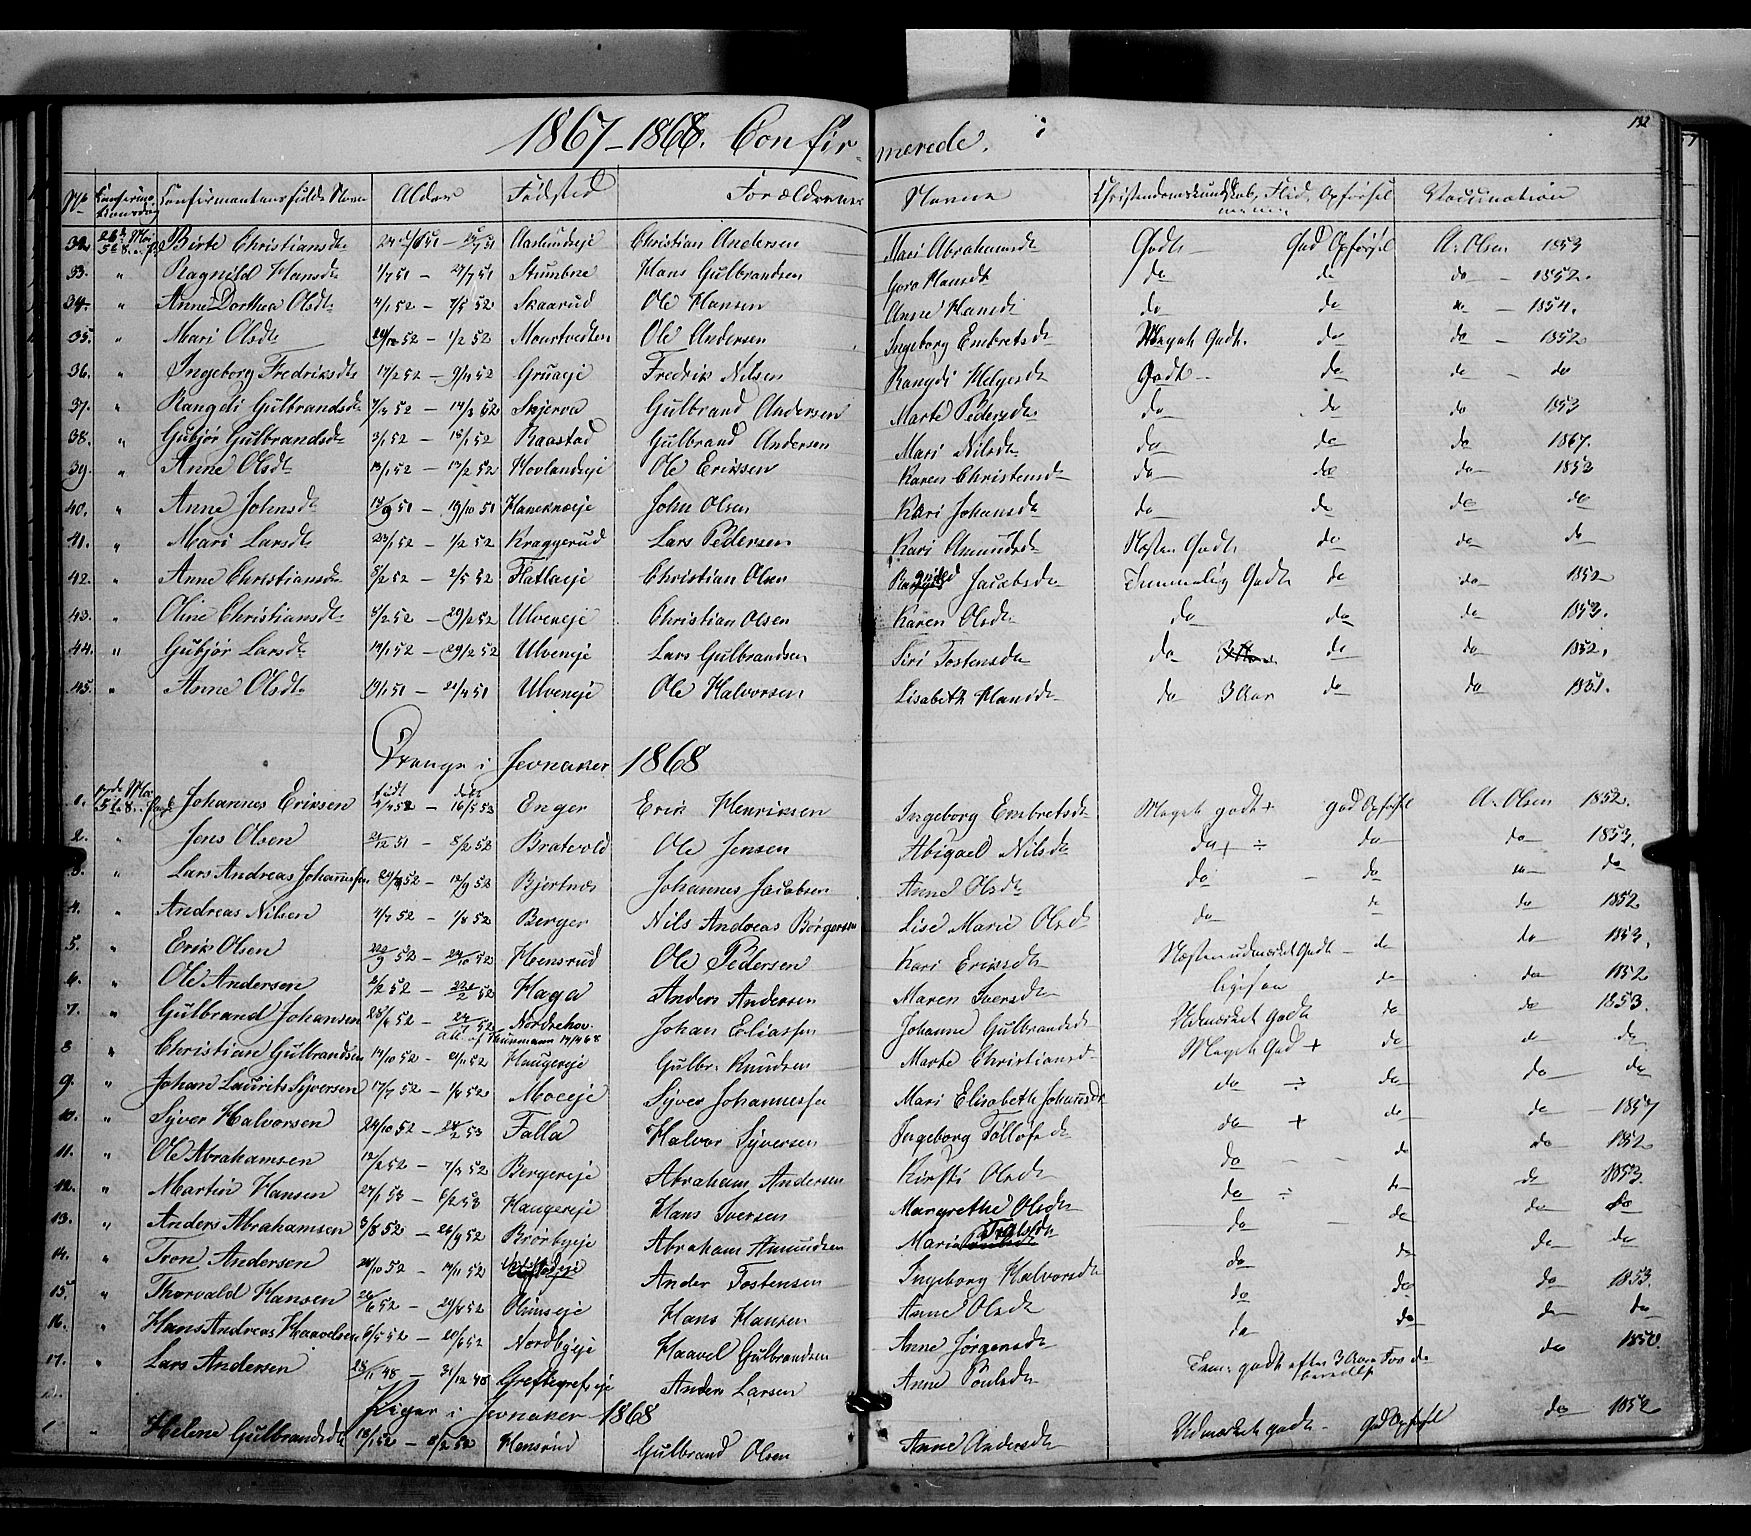 1867-1868. Confirmerede.
132
No Confirmationsdag Confirmantens fulde Navn Alder Fødested Forældrenes Navne Christendomskundskab, Flid, Opførsel Vaccination
32. Birte Christiansdr Christian Andersen Mari Abrahamsdr Godt God Opførsel A. Olsen 1853
33. " Ragnild Hansdr 1/7 51 - 27/7 51 Stumbre Hans Gulbrandsen Goro Hansdr do do do - 1852.
34. " Anne Dorthea Olsdr 4/1 52 - 7/5 52 Skaarud Ole Hansen Anne Hansdr do do do - 1854.
35. " Mari Olsdr 24/12 52 - 1/2 52 Ole Andersen Ingeborg Embretsdr Meget Godt. do do - 1852
36. " Ingeborg Fredriksdr 17/2 52 - 9/4 52 Grua eje Fredrik Nilsen Rangdi Helgesdr Godt - do do - do
37. " Rangdi Gulbrandsdr 7/2 52 - 14/3 52 Skjerva Gulbrand Andersen Marte Pedersdr do do do 1853
38. " Gubjør Gulbrandsdr 3/1 52 - 18/1 52 Raastad Gulbrand Andersen Mari Nilsdr do do do 1867.
39. " Anne Olsdr 13/1 52 - 17/2 52 Hovlandseje Ole Eriksen Karen Christensdr do do do 1853
40. " Anne Johnsdr 14/9 51 - 19/10 51 Haneknæeje John Olsen Kari Johansdr do do do do
41. " Mari Larsdr 23/1 52 - 1/2 52 Kraggerud Lars Pedersen Kari Amundsdr Næsten Godt do do do
42. " Anne Christiansdr 5/2 52 - 2/5 52 Flatlaeje Christian Olsen Ragnild Jacobsdr Temmelig Godt do do 1852
43. " Oline Christiansdr 8/2 52 - 29/2 52 Ulveneje Christian Olsen Karen Olsdr do do do 1853.
44. " Gubjør Larsdr 14/1 52 - 29/2 52 Ulveneje Lars Gulbrandsen Siri Tostensdr do do do 1852.
45. " Anne Olsdr 19/1 51 - 21/4 51 Ulveneje Ole Halvorsen Lisabeth Hansdr do 3 Aar do do 1851.
Drenge i Jevnaker 1868
født døbt
1. Johannes Eriksen - 16/5 53 Enger Erik Henriksen Ingeborg Embretsdr Meget godt + god Opførsel A. Olsen 1852.
2. " Jens Olsen 21/12 51 - 8/2 52 Bratvold Ole Jensen Abigael Nilsdr do + ÷ do do 1853.
3. " Lars Andreas Johannesen - 12/9 52 Bjertnæs Johannes Jacobsen Anne Olsdr do - do do
4. " Andreas Nilsen 4/7 52 - 1/8 52 Berger Nils Andreas Børgersen Lise Marie Olsdr do do do 1852
5. " Erik Olsen 22/9 52 - 24/10 52 Hensrud Ole Pedersen Kari Eriksdr Næsten udmærket Godt - do do 1853.
6. " Ole Andersen 2/2 52 - 22/2 52 Haga Anders Andersen Maren Iversdr ligesaa do do 1852
7. " Gulbrand Johansen 25/4 52 - Nordrehov. Johan Eliassen Johanne Gulbrandsdr Udmærket Godt do do 1853.
Att. af Thurmann 14/4 68
8 " Christian Gulbrandsen 14/10 52 - 21/11 52 Haugereje Gulbr. Knudsen Marte Christiansdr Meget God + do do do
9. " Johan Laurits Syversen 17/7 52 - 1/8 52 Moeeje Syver Johannessen Mari Elisabeth Johansdr do ÷ do do do
10. " Syver Halvorsen 24/10 52 - 24/2 53 Falla Halvor Syversen Ingeborg Tollofsdr do + do do 1857
11. " Ole Abrahamsen 12/2 52 - 7/3 52 Bergereje Abraham Andersen Kirsti Olsdr do - - do do 1852
12. " Martin Hansen 27/1 53 - 6/2 53 Haugereje Hans Iversen Margrethe Olsdr do ÷ do do 1853.
13. " Anders Abrahamsen 3/8 52 - 26/9 52 Brørbyeje Abraham Amundsen Maria do - do do do
14. " Tron Andersen 24/10 52 - 14/11 52 Ander Tostensen Ingeborg Halvorsdr do do do do
15. " Thorvald Hansen 26/6 52 - 29/8 52 Olimseje Hans Hansen Anne Olsdr do do do 1853.
16. " Hans Andreas Haavelsen 6/5 52 - 20/6 52 Nordbyeje Haavel Gulbrandsen Anne Jørgensdr do do do do
17. " Lars Andersen 28/11 48 - 31/12 48 Greftegrefseje Anders Larsen Anne Poulsdr Tem: godt efter 3 Aars Forberedelse do do 1850.
Piger i Jevnaker 1868
1 " Helene Gulbrandsdr 18/1 52 - 8/2 52 Hensrud Gulbrand Olsen Anne Andersdr Udmærket godt - God Opførsel do 1852